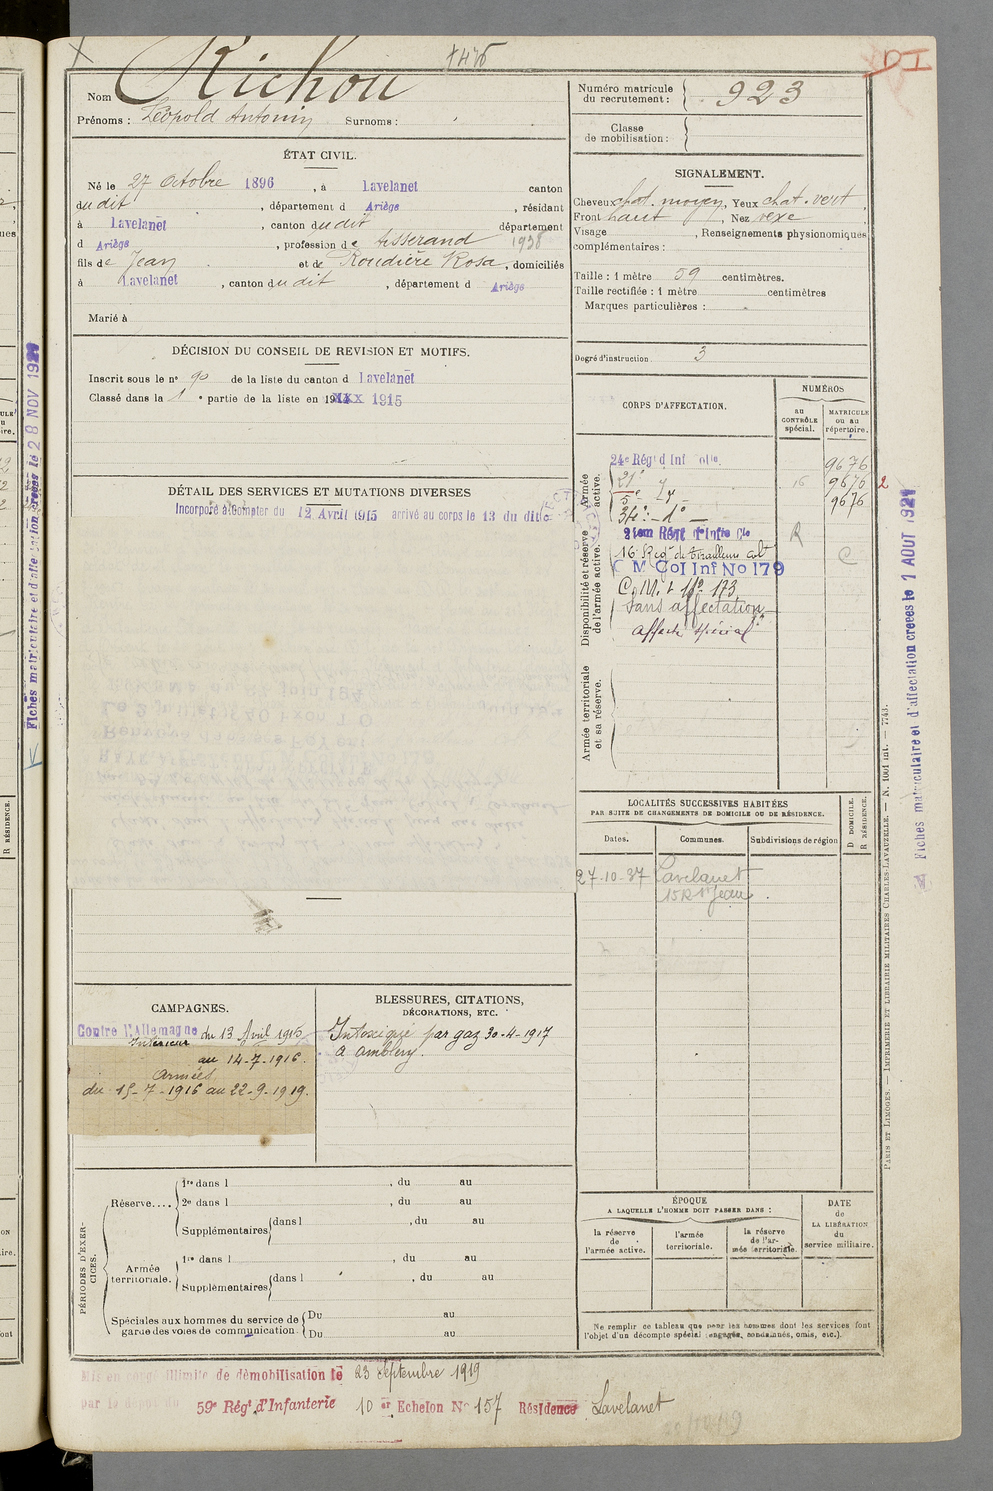 Nom Richou
Prénoms : Léopold Antonin Surnoms :
Numéro matricule du recrutement : 923
Classe de mobilisation :
DI
ÉTAT CIVIL.
Né le 27 Octobre 1896, à Lavelanet canton
dudit, département d Ariège, résidant
à Lavelanet, canton dudit département
d Ariège, profession de tisserand 1938
fils de Jean et de Roudière Rosa, domiciliés
à Lavelanet, canton dudit, département d Ariège
Marié à
SIGNALEMENT.
Cheveux chat. moyen, Yeux chat. vert,
Front haut, Nez vexe
Visage , Renseignements physionomiques
complémentaires :
Taille : 1 mètre 59 centimètres.
Taille rectifiée : 1 mètre centimètres
Marques particulières :
Degré d'instruction 3
DÉCISION DU CONSEIL DE REVISION ET MOTIFS.
Inscrit sous le n° 90 de la liste du canton d Lavelanet
Classé dans la 1e partie de la liste en 1915
DÉTAIL DES SERVICES ET MUTATIONS DIVERSES
Incorporé à compter du 12 Avril 1915 arrivé au corps le 13 du dit
CORPS D'AFFECTATION.
NUMÉROS
au CONTRÔLE spécial.
MATRICULE ou au répertoire.
Armée active.
24e Régt d'Inf Colle 9676
21e 9676
5e 9676
34e
Disponibilité et réserve de l'armée active.
21em Régt d'Infie Cle R
16 Reg de tirailleurs C
C M Col Inf No 179
C. M. I No 173
Sans affectation
Affecté spécial
Armée territoriale et sa réserve.
LOCALITÉS SUCCESSIVES HABITÉES
PAR SUITE DE CHANGEMENTS DE DOMICILE OU DE RÉSIDENCE.
Dates. Communes. Subdivisions de région D DOMICILE. R RÉSIDENCE.
27-10-37 Lavelanet
15 R St Jean
CAMPAGNES.
Contre l'Allemagne du 13 Avril 1915
Intérieur
au 14-7-1916.
Armées
du 15-7-1916 au 22-9-1919.
BLESSURES, CITATIONS,
DÉCORATIONS, ETC.
Intoxiqué par gaz 30-4-1917
à Ambleny.
PÉRIODES D'EXERCICES.
Réserve.... 1re dans l , du au
2e dans l , du au
Supplémentaires dans l , du au
Armée territoriale. 1re dans l , du au
Supplémentaires dans l , du au
Spéciales aux hommes du service de garde des voies de communication. Du au
Du au
ÉPOQUE
A LAQUELLE L'HOMME DOIT PASSER DANS :
la réserve de l'armée active.
l'armée territoriale.
la réserve de l'armée territoriale.
DATE de LA LIBÉRATION du service militaire.
Ne remplir ce tableau que pour les hommes dont les services font
l'objet d'un décompte spécial (engagés, condamnés, omis, etc.).
Mis en congé illimité de démobilisation le 23 Septembre 1919
par le dépôt du 59e Régt d'Infanterie 10er Echelon No 157 Résidence Lavelanet
Fiches matriculaire et d'affectation créées le 28 NOV 1921
Fiches matriculaire et d'affectation créées le 1 AOUT 1921
PARIS ET LIMOGES. — IMPRIMERIE ET LIBRAIRIE MILITAIRES CHARLES-LAVAUZELLE. — N. 1001 int. — 7743.